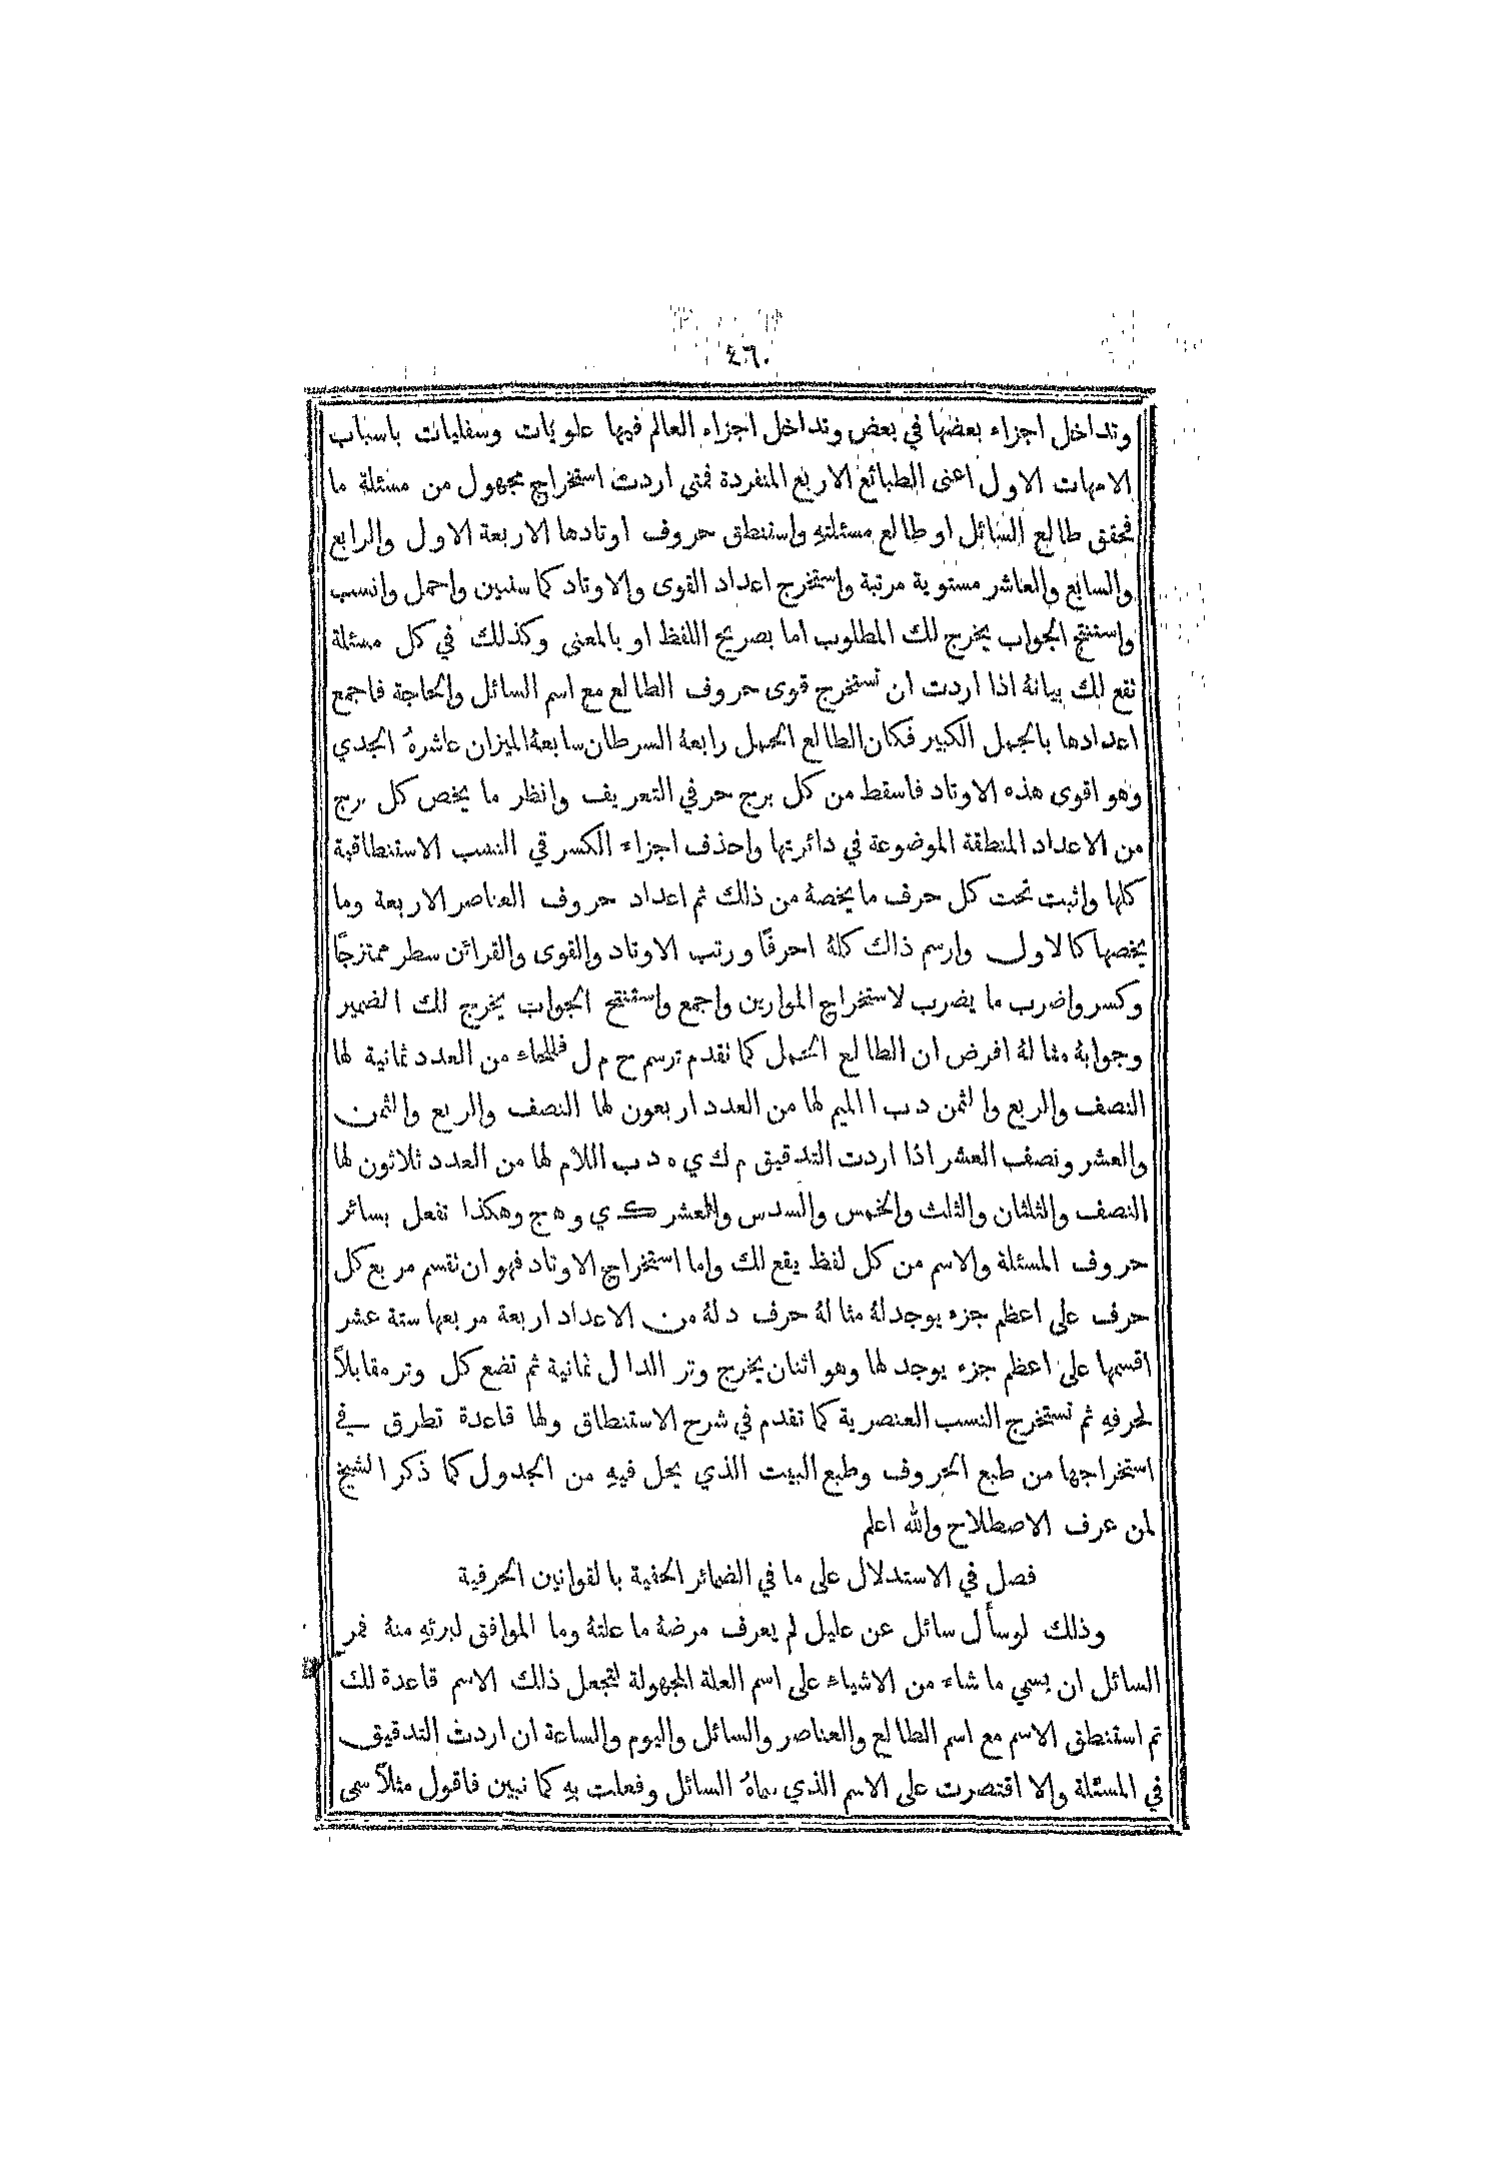 ٤٦٠
وتداخل اجزاء بعضها في بعض وتداخل اجزاء العالم فيها علويات وسفليات باسباب
الامهات الاول اعني الطبائع الاربع المنفردة فمتى اردت استخراج مجهول من مسئلة ما
فحقق طالع السائل او طالع مسئلته واستنطق حروف اوتادها الاربعة الاول والرابع
والسابع والعاشر مستوية مرتبة واستخرج اعداد القوى والاوتاد كما سنبين واحمل وانسب
واستنتج الجواب يخرج لك المطلوب اما بصريح اللفظ او بالمعنى وكذلك في كل مسئلة
تقع لك بيانهُ اذا اردت ان تستخرج قوى حروف الطالع مع اسم السائل والحاجة فاجمع
اعدادها بالجمل الكبير فكان الطالع الحمل رابعهُ السرطان سابعهُ الميزان عاشرهُ الجدي
وهو اقوى هذه الاوتاد فاسقط من كل برج حرفي التعريف وانظر ما يخص كل برج
من الاعداد المنطقة الموضوعة في دائرتها واحذف اجزاء الكسر في النسب الاستنطاقية
كلها واثبت تحت كل حرف ما يخصهُ من ذلك ثم اعداد حروف العناصر الاربعة وما
يخصها كالاول وارسم ذلك كلهُ احرفًا ورتب الاوتاد والقوى والقرائن سطر ممتزجًا
وكسر واضرب ما يضرب لاستخراج الموازين واجمع واستنتج الجواب يخرج لك الضمير
وجوابهُ مثالهُ افرض ان الطالع الحمل كما تقدم ترسم ح م ل فللحاء من العدد ثمانية لها
النصف والربع والثمن د ب ا الميم لها من العدد اربعون لها النصف والربع والثمن
والعشر ونصف العشر اذا اردت التدقيق م ك ي ه د ب اللام لها من العدد ثلاثون لها
النصف والثلثان والثلث والخمس والسدس والعشر ك ي و ه ج وهكذا تفعل بسائر
حروف المسئلة والاسم من كل لفظ يقع لك واما استخراج الاوتاد فهو ان تقسم مربع كل
حرف على اعظم جزء يوجد لهُ مثالهُ حرف د لهُ من الاعداد اربعة مربعها ستة عشر
اقسمها على اعظم جزء يوجد لها وهو اثنان يخرج وتر الدال ثمانية ثم تضع كل وتر مقابلاً
لحرفهِ ثم تستخرج النسب العنصرية كما تقدم في شرح الاستنطاق ولها قاعدة تطرق في
استخراجها من طبع الحروف وطبع البيت الذي يحل فيهِ من الجدول كما ذكر الشيخ
لمن عرف الاصطلاح والله اعلم
فصل في الاستدلال على ما في الضمائر الخفية بالقوانين الحرفية
وذلك لو سأل سائل عن عليل لم يعرف مرضهُ ما علتهُ وما الموافق لبرئهِ منهُ فمر
السائل ان يسمي ما شاء من الاشياء على اسم العلة المجهولة لتجعل ذلك الاسم قاعدة لك
ثم استنطق الاسم مع اسم الطالع والعناصر والسائل واليوم والساعة ان اردت التدقيق
في المسئلة والا اقتصرت على الاسم الذي سماهُ السائل وفعلت بهِ كما نبين فاقول مثلاً سمى